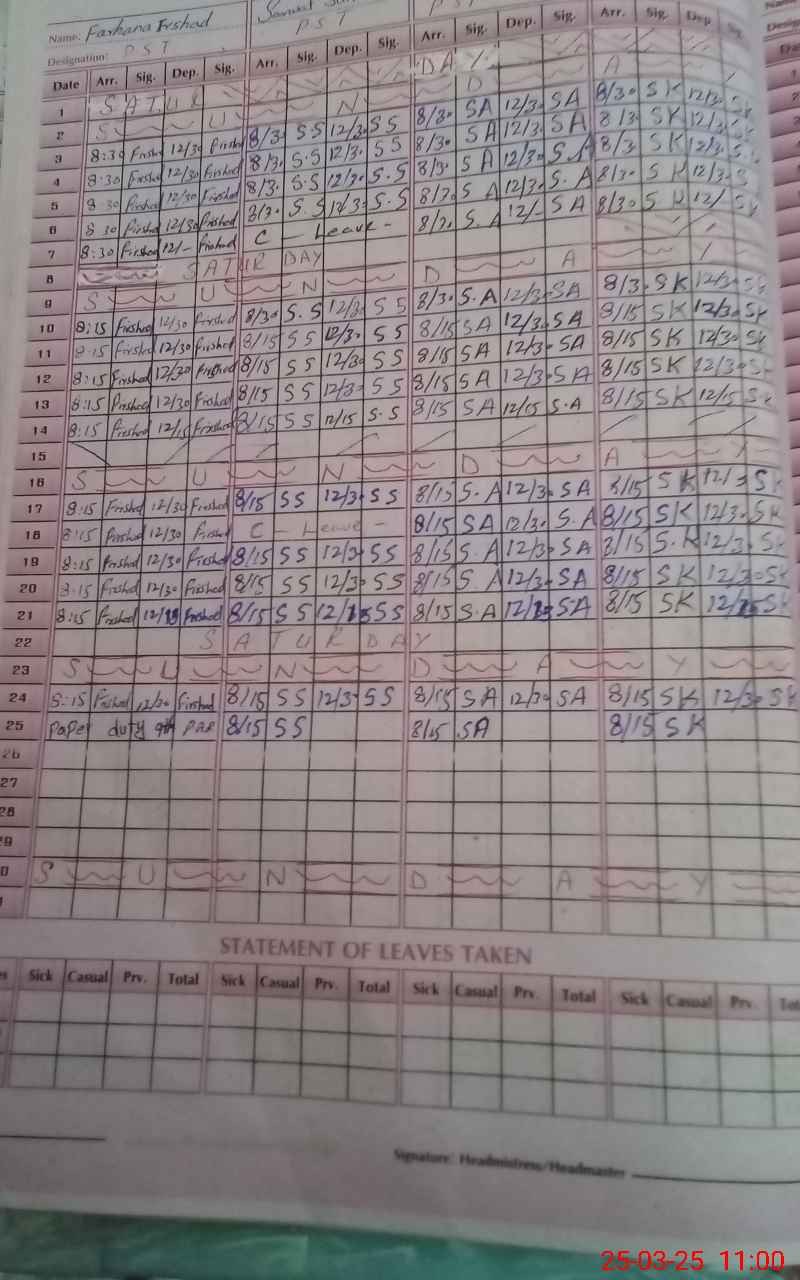 Name: Farhana Frshad
Designation: PST PST
Date Arr. Sig. Dep. Sig. Arr. Sig. Dep. Sig. Arr. Sig. Dep. Sig. Arr. Sig. Dep
1 SATUR DAY
2 S U N D A
3 8:30 Firshad 12/30 Firshad 8/30 S S 12/30 S S 8/30 SA 12/30 SA 8/30 SK 12/30 SK
4 8:30 Firshad 12/30 Firshad 8/30 S.S 12/30 S S 8/30 SA 12/30 SA 8/30 SK 12/30
5 8:30 Firshad 12/30 Firshad 8/30 S.S 12/30 S.S 8/30 SA 12/30 S.A 8/30 SK 12/30
6 8:30 Firshad 12/30 Firshad 8/30 S.S 12/30 S.S 8/30 S A 12/30 S.A 8/30 S K 12/30
7 8:30 Firshad 12/- Firshad C - Leave - 8/30 S.A 12/- SA 8/30 S K 12/-
8 SATUR DAY
9 S U N D A Y
10 8:15 Firshad 12/30 Firshad 8/30 S.S 12/30 S S 8/30 S.A 12/30 SA 8/30 SK 12/30
11 8:15 Firshad 12/30 Firshad 8/15 S S 12/30 S S 8/15 SA 12/30 SA 8/15 SK 12/30 SK
12 8:15 Firshad 12/30 Firshad 8/15 S S 12/30 S S 8/15 SA 12/30 SA 8/15 SK 12/30
13 8:15 Firshad 12/30 Firshad 8/15 S S 12/30 S S 8/15 SA 12/30 SA 8/15 SK 12/30
14 8:15 Firshad 12/15 Firshad 8/15 S S 12/15 S.S 8/15 SA 12/15 S.A 8/15 SK 12/15
15
16 S U N D A Y
17 8:15 Firshad 12/30 Firshad 8/15 SS 12/30 SS 8/15 S.A 12/30 SA 8/15 SK 12/30
18 8:15 Firshad 12/30 Firshad C - Leave - 8/15 SA 12/30 S.A 8/15 SK 12/30 SK
19 8:15 Firshad 12/30 Firshad 8/15 SS 12/30 SS 8/15 S.A 12/30 SA 8/15 S.K 12/30 SK
20 8:15 Firshad 12/30 Firshad 8/15 SS 12/30 SS 8/15 S.A 12/30 SA 8/15 SK 12/30 SK
21 8:15 Firshad 12/15 Firshad 8/15 SS 12/15 SS 8/15 S.A 12/15 S.A 8/15 SK 12/15 SK
22 S A T U R D A Y
23 S U N D A Y
24 8:15 Firshad 12/30 Firshad 8/15 SS 12/30 SS 8/15 SA 12/30 SA 8/15 SK 12/30 SK
25 Paper duty 8/15 SS 8/15 SA 8/15 SK
26
27
28
29
30 S U N D A Y
STATEMENT OF LEAVES TAKEN
Sick Casual Prv. Total Sick Casual Prv. Total Sick Casual Prv. Total Sick Casual Prv.
Signature: Headmistress/Headmaster
25-03-25 11:00